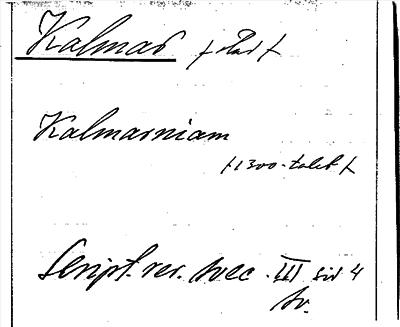 Kalmar / stad /
Kalmarniam
/ 1300-talet /
Script. rer. svec. III sid 4
sv.